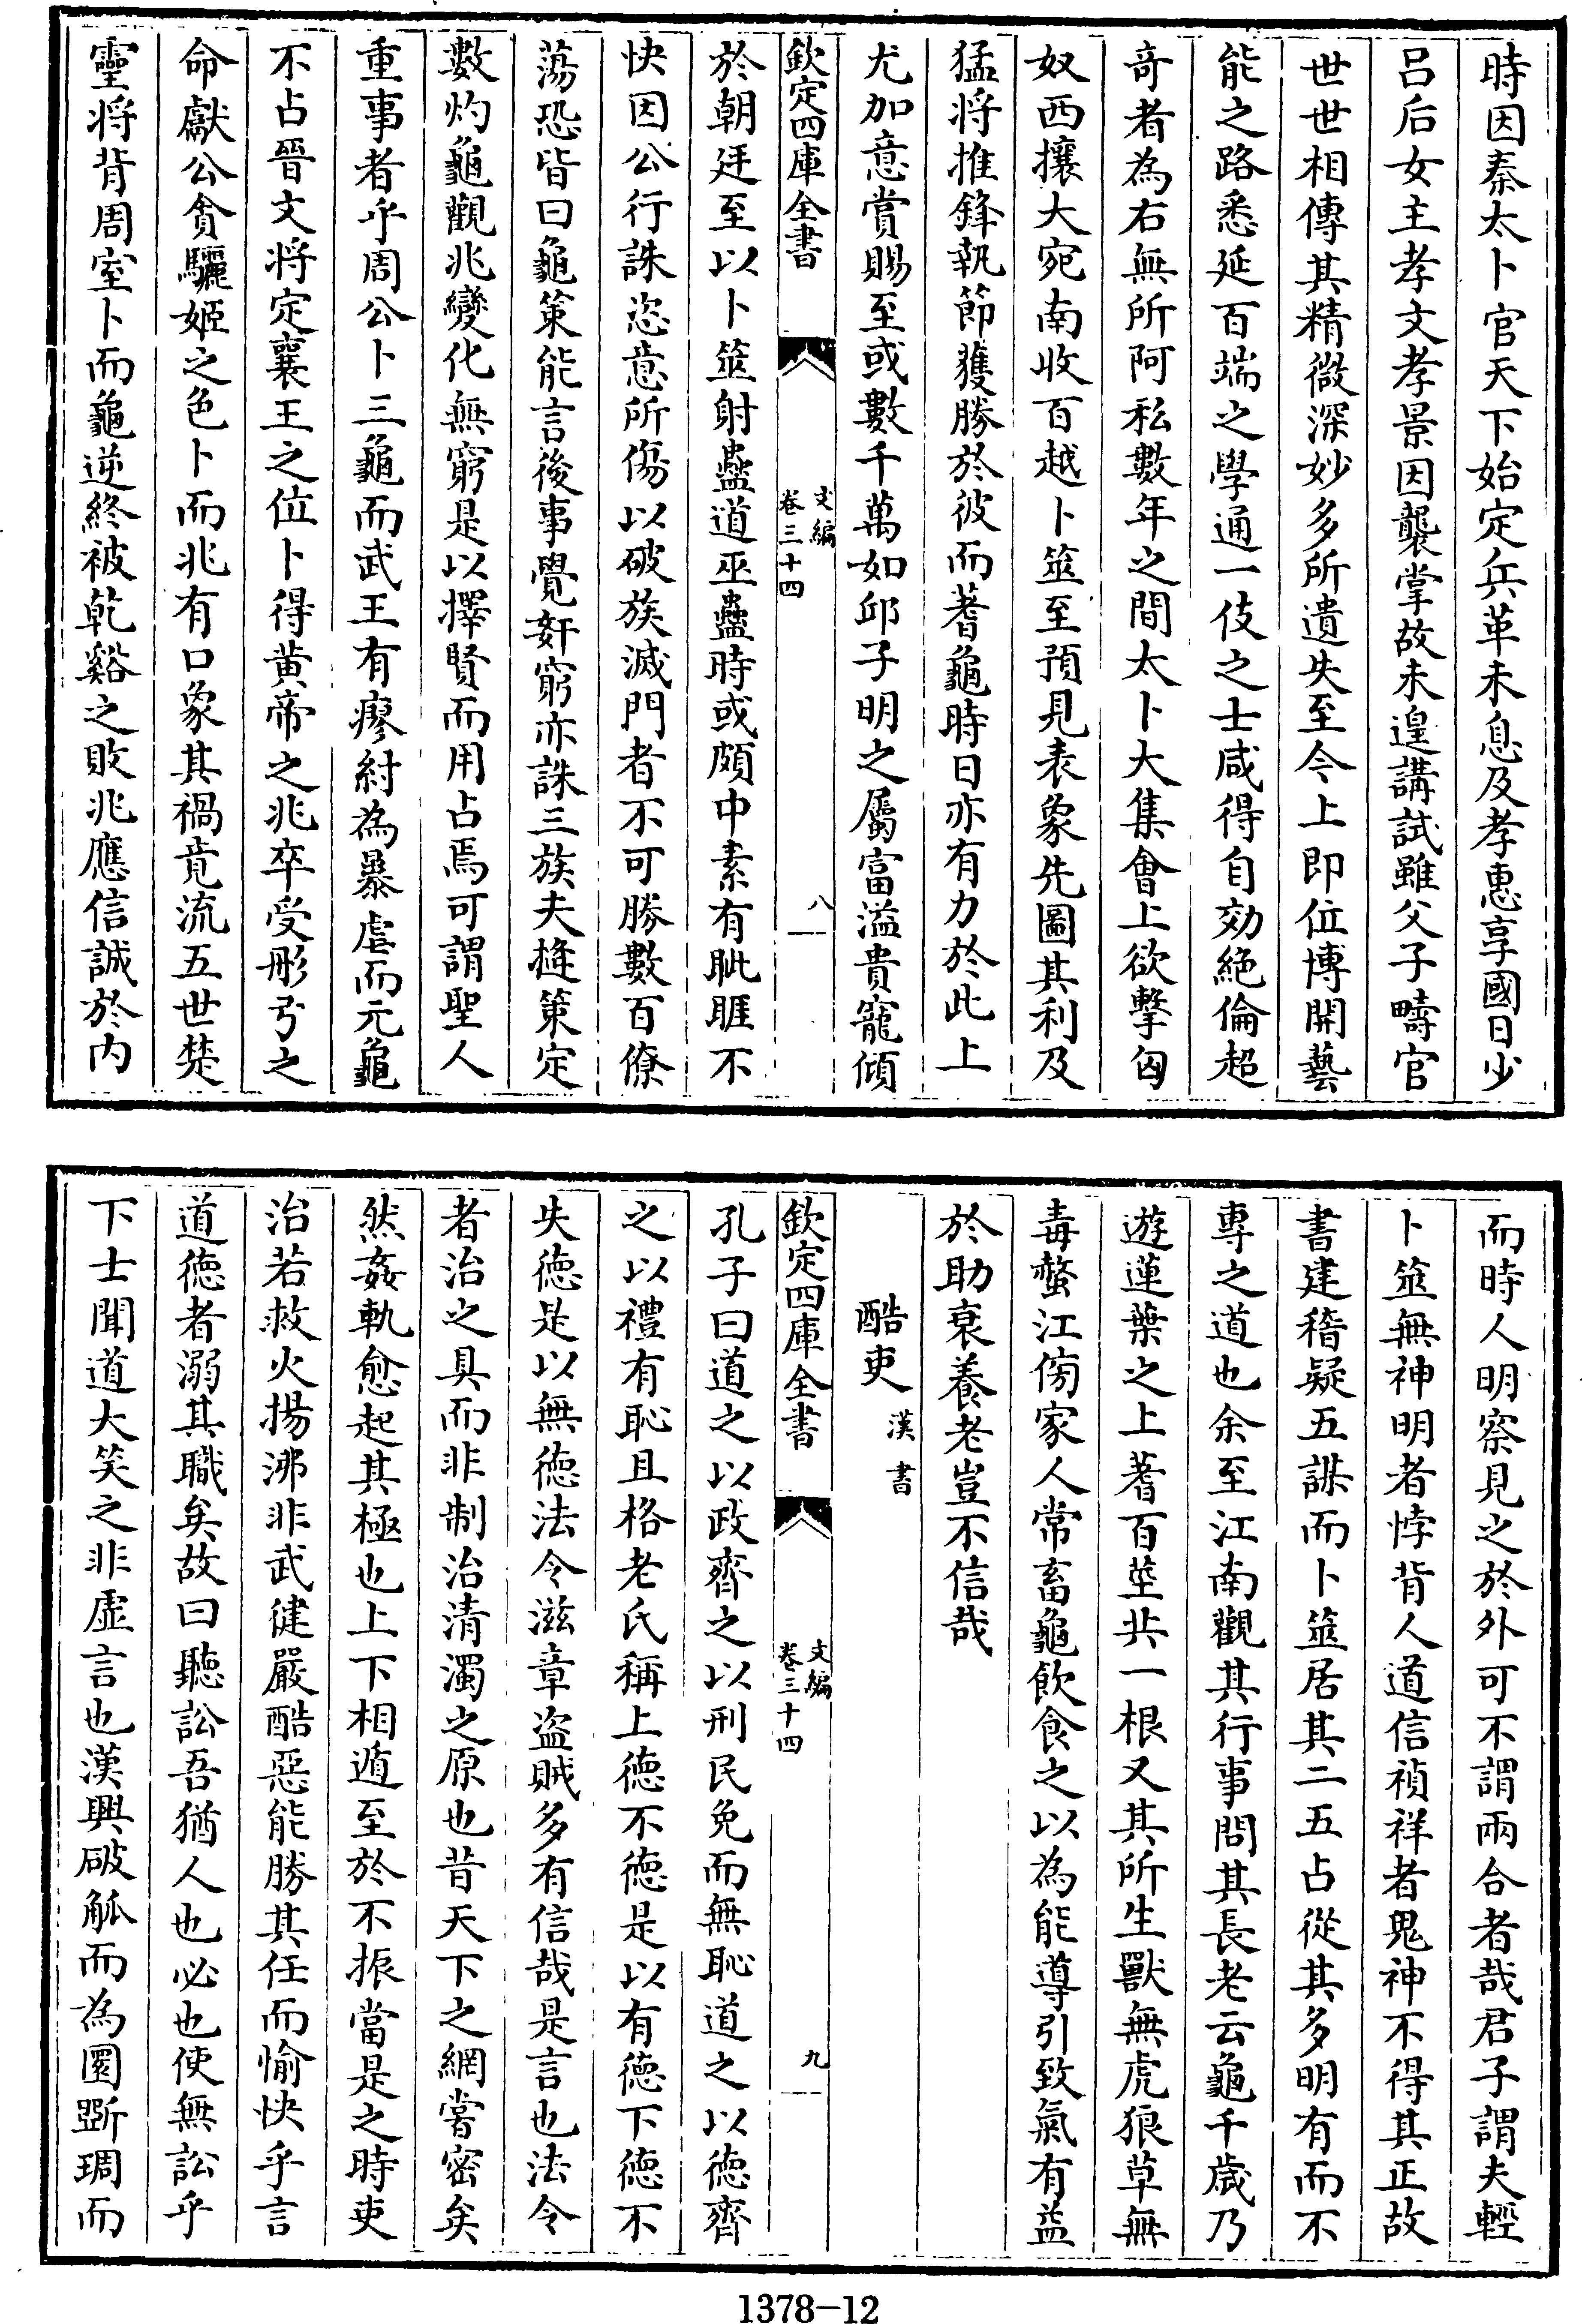 時因秦太卜官天下始定兵革未息及孝惠享國日少
呂后女主孝文孝景因襲掌故未遑講試雖父子疇官
世世相傳其精微深妙多所遺失至今上即位博開藝
能之路悉延百端之學通一伎之士咸得自効絶倫超
竒者為右無所阿私數年之間太卜大集會上欲擊匈
奴西攘大宛南收百越卜筮至預見表象先圖其利及
猛将推鋒執節獲勝於彼而蓍龜時日亦有力於此上
尤加意賞賜至或數千萬如邱子明之屬富溢貴寵傾
欽定四庫全書
文編
卷三十四
八
於朝廷至以卜筮射蠱道巫蠱時或頗中素有眦睚不
快因公行誅恣意所傷以破族滅門者不可勝數百僚
蕩恐皆曰龜策能言後事覺奸窮亦誅三族夫摓策定
數灼龜觀兆變化無窮是以擇賢而用占焉可謂聖人
重事者乎周公卜三龜而武王有瘳紂為暴虐而元龜
不占晉文将定襄王之位卜得黄帝之兆卒受彤弓之
命獻公貪驪姬之色卜而兆有口象其禍竟流五世楚
靈将背周室卜而龜逆終被乾谿之敗兆應信誠於内
而時人明察見之於外可不謂兩合者哉君子謂夫輕
卜筮無神明者悖背人道信禎祥者鬼神不得其正故
書建稽疑五謀而卜筮居其二五占從其多明有而不
專之道也余至江南觀其行事問其長老云龜千歲乃
遊蓮葉之上蓍百莖共一根又其所生獸無虎狼草無
毒螫江傍家人常畜龜飲食之以為能導引致氣有益
於助衰養老豈不信哉
酷吏 漢書
欽定四庫全書
文編
卷三十四
九
孔子曰道之以政齊之以刑民免而無恥道之以德齊
之以禮有恥且格老氏稱上德不德是以有德下德不
失德是以無德法令滋章盗賊多有信哉是言也法令
者治之具而非制治清濁之原也昔天下之網嘗密矣
然姦軌愈起其極也上下相遁至於不振當是之時吏
治若救火揚沸非武健嚴酷惡能勝其任而愉快乎言
道德者溺其職矣故曰聽訟吾猶人也必也使無訟乎
下士聞道大笑之非虛言也漢興破觚而為圜斲琱而
1378-12